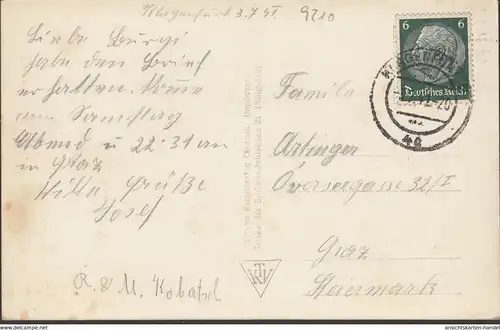 Klagenfurt 3.7.41. 9210
Liebe Burgi
habe den Brief
erhalten. Komme
am Samstag
Abend u 22.31 an
in Graz
Grüße
Josef
R. & M. Kobatsch
Familie
Artinger
Overseegasse 32/I
Graz
Steiermark
6 6
Deutsches Reich
KLAGENFURT
TKV